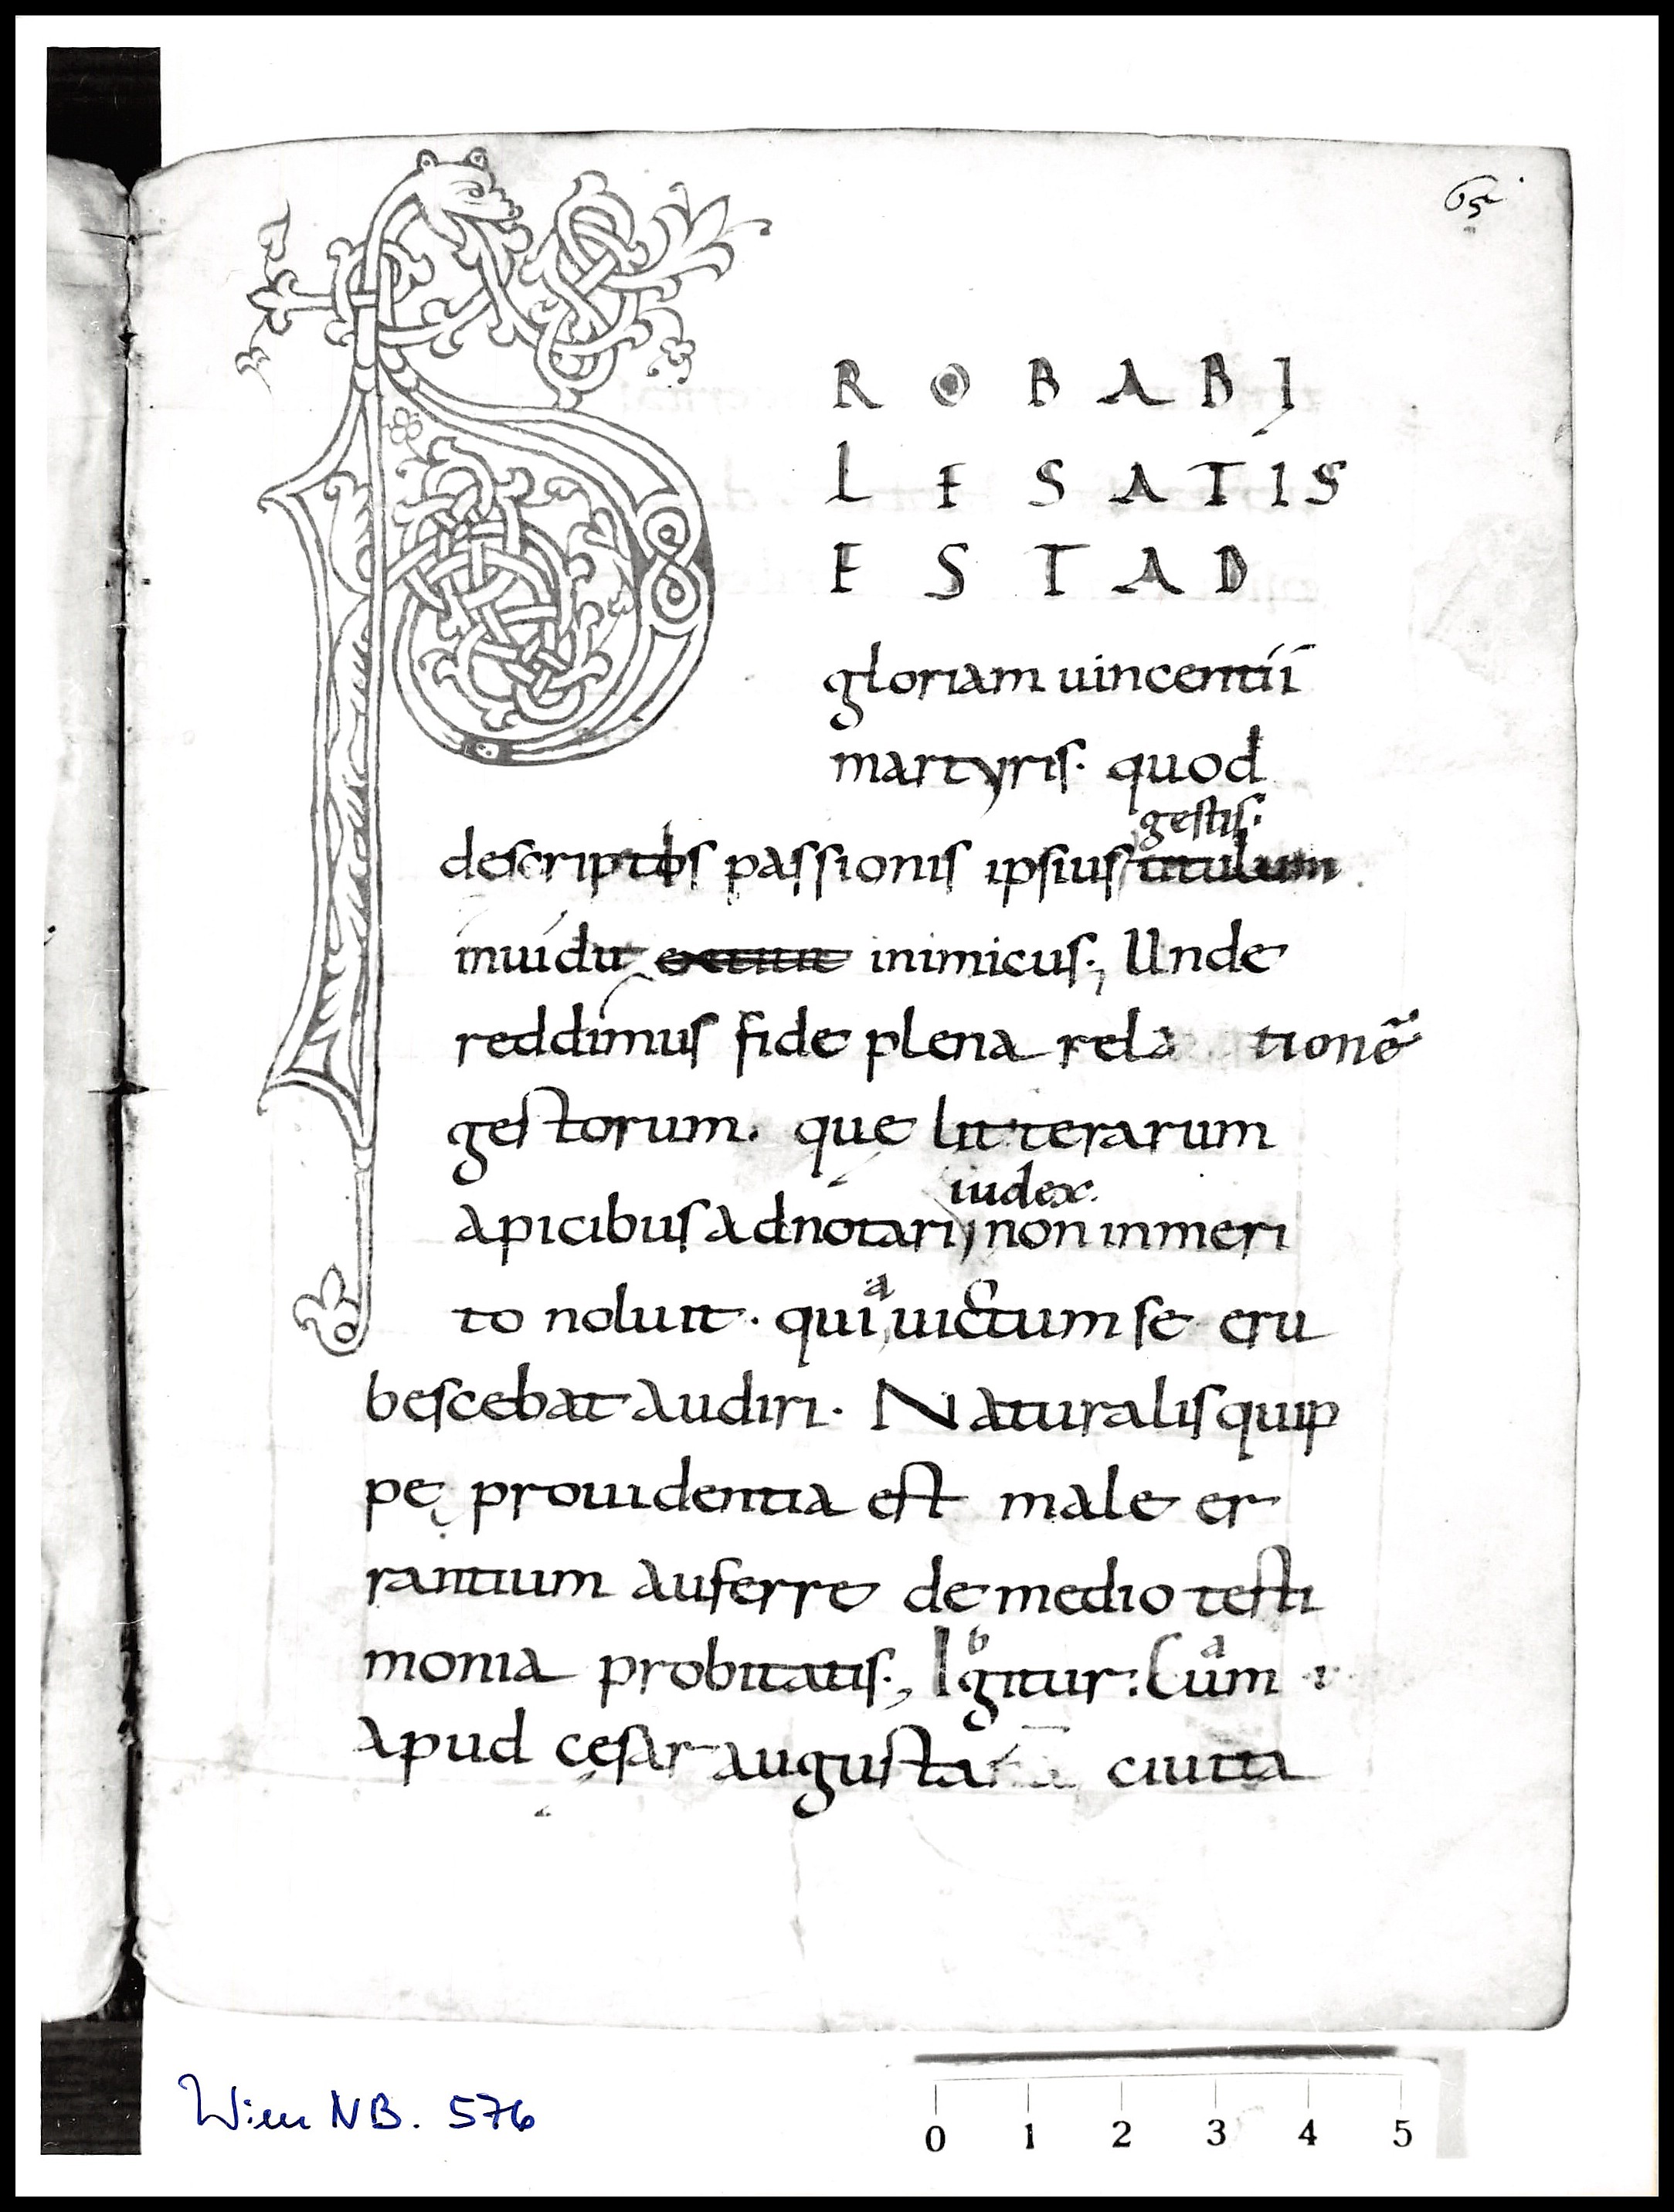 65
P R O B A B I
L E S A T I S
E S T A D
gloriam uincentii
martyris· quod
gestis:
descriptis passionis ipsius titulum
inuidit inimicus·, Unde
reddimus fide plena relationē
gestorum. que litterarum
iudex.
apicibus adnotari, non inmeri
to noluit· quia uictum se eru
bescebat audiri· Naturalis quip
pę prouidentia est male er
rantium auferre de medio testi
b a
monia probitatis·, Igitur: Cum
apud cęsaraugusta ciuita
Wien NB. 576
0 1 2 3 4 5